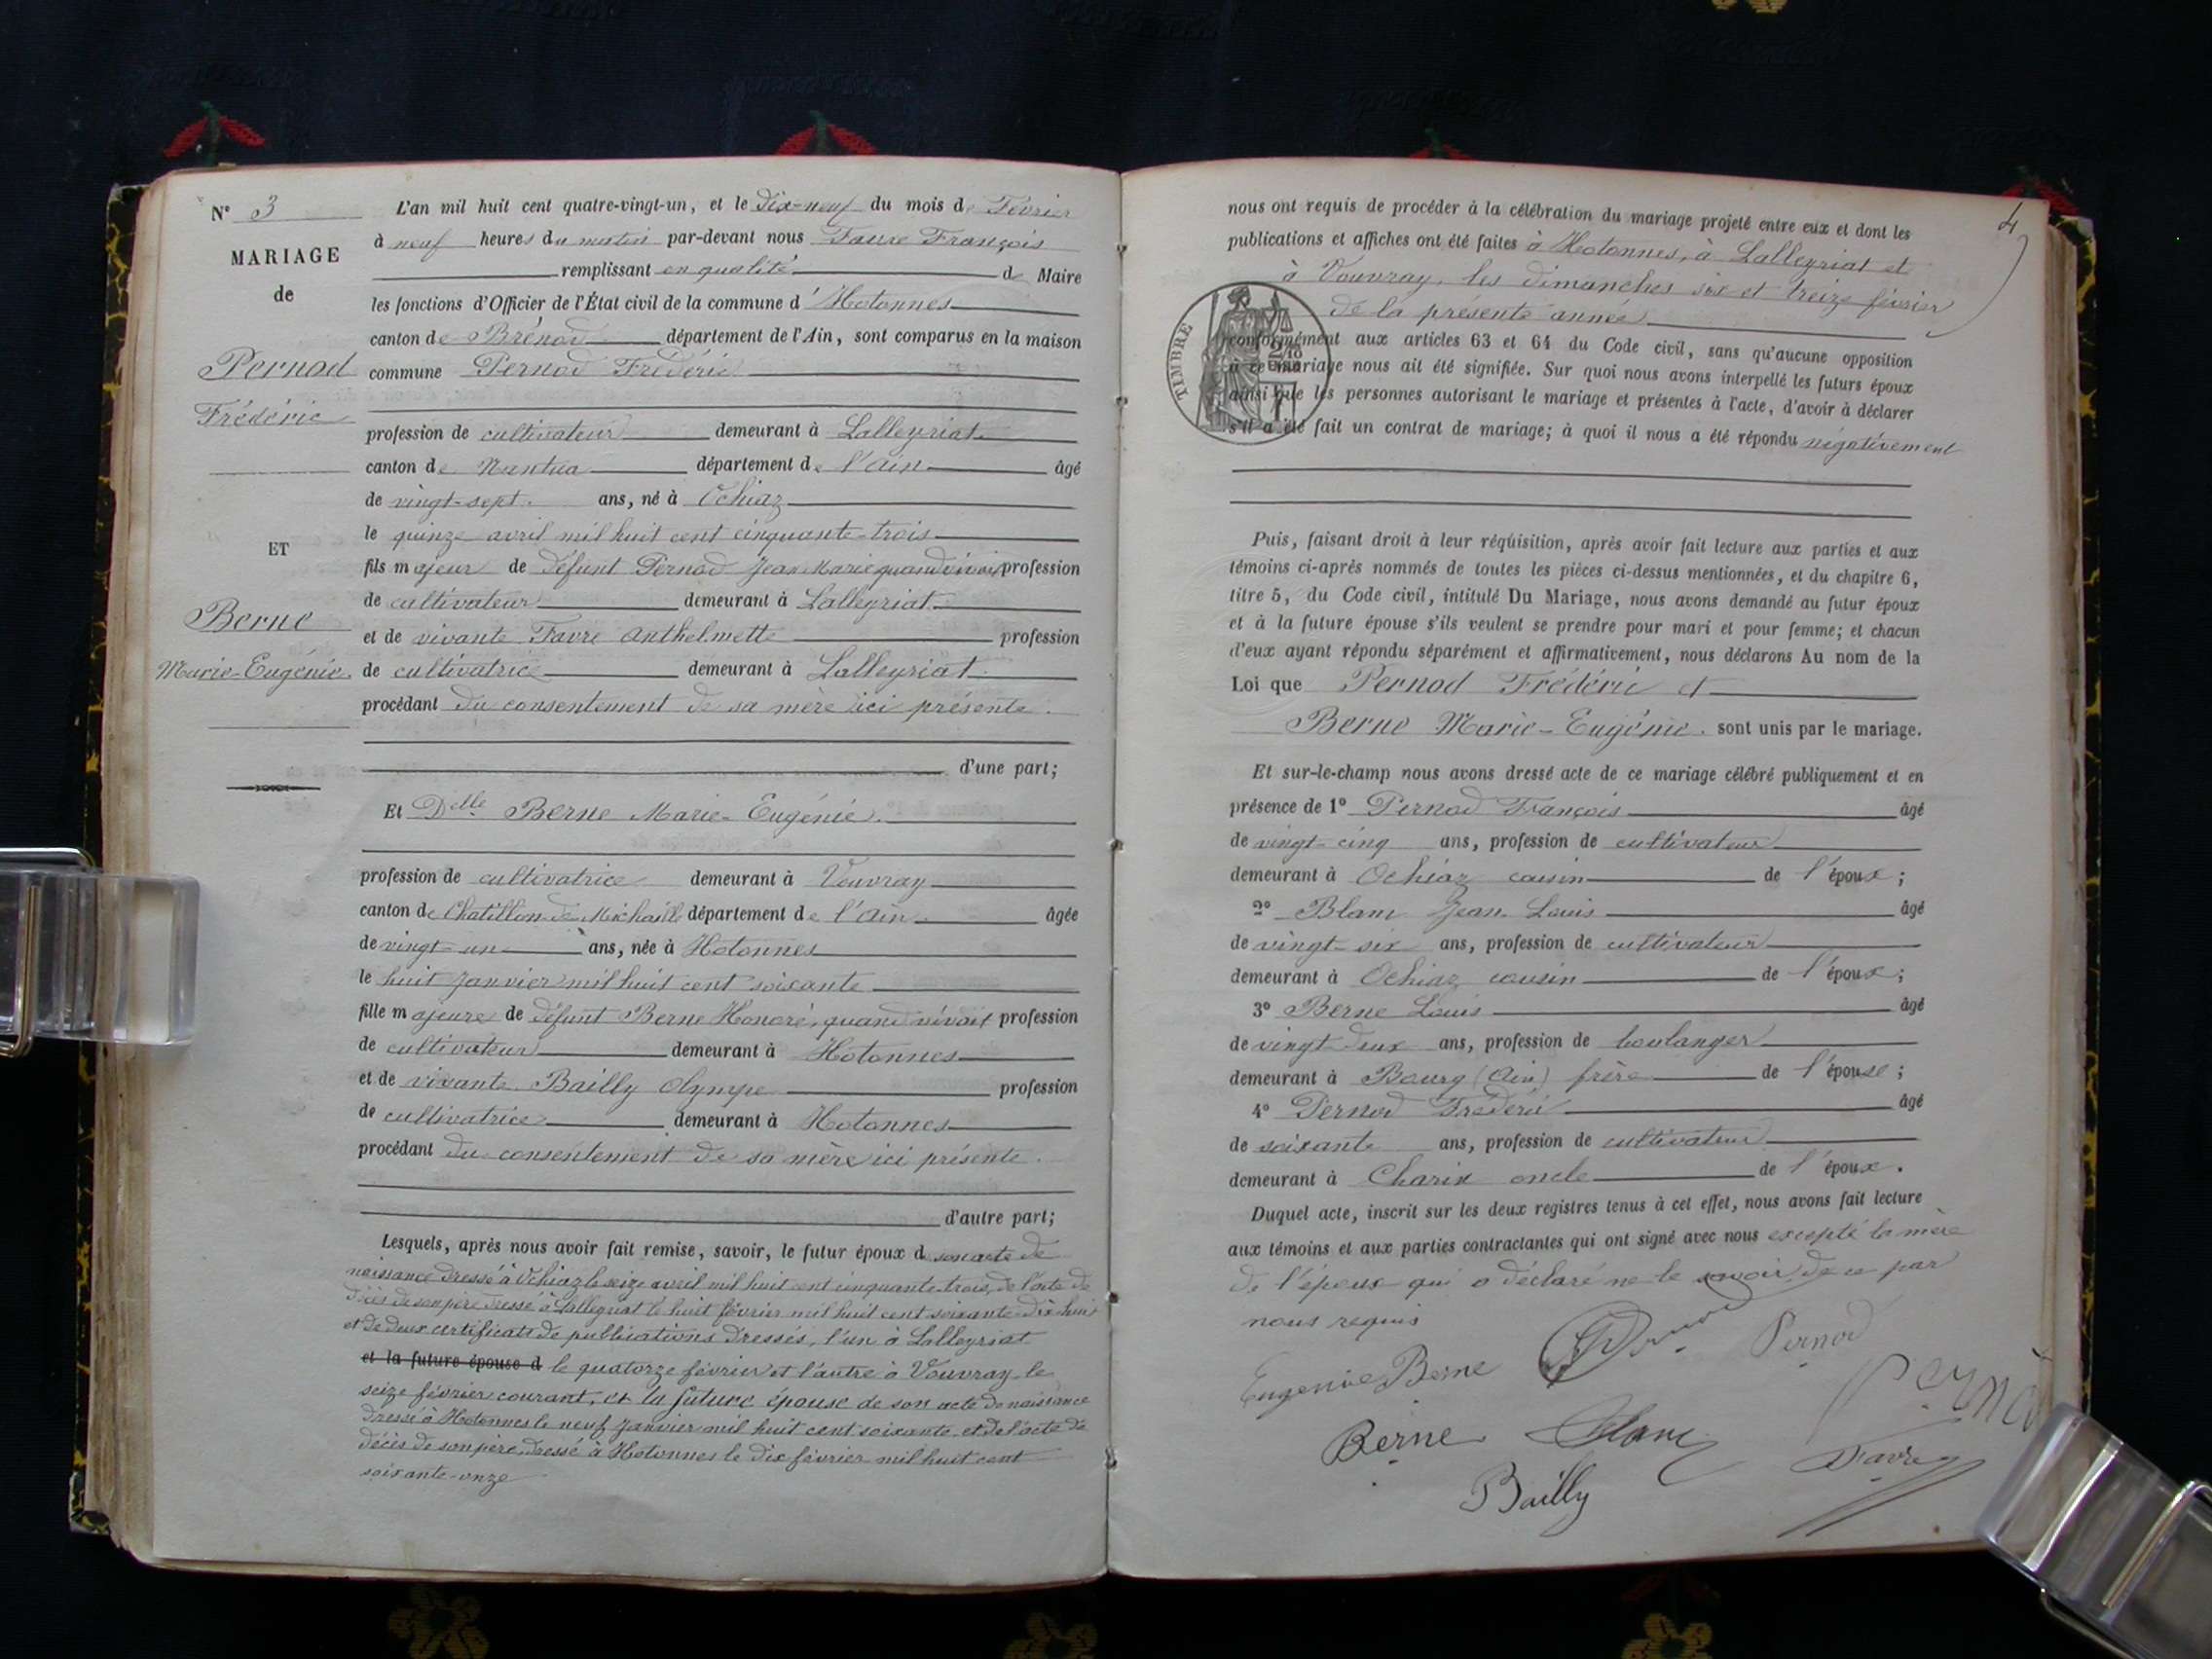 N° 3
MARIAGE
de
Pernod
Frédéric
ET
Berne
Marie-Eugénie.
L'an mil huit cent quatre-vingt-un, et le dix-neuf du mois de Février
à neuf heures du matin par-devant nous Favre François
remplissant en qualité de Maire
les fonctions d'Officier de l'État civil de la commune d'Hotonnes
canton de Brénod département de l'Ain, sont comparus en la maison
commune Pernod Frédéric
profession de cultivateur demeurant à Lalleyriat
canton de Nantua département de l'Ain âgé
de vingt-sept. ans, né à Ochiaz
le quinze avril mil huit cent cinquante-trois
fils majeur de défunt Pernod Jean Marie quand vivait profession
de cultivateur demeurant à Lalleyriat
et de vivante Favre Anthelmette profession
de cultivatrice demeurant à Lalleyriat.
procédant du consentement de sa mère ici présente.
d'une part;
Et Delle Berne Marie-Eugénie.
profession de cultivatrice demeurant à Vouvray
canton de Chatillon de Michaille département de l'Ain. âgée
de vingt-un ans, née à Hotonnes
le huit Janvier mil huit cent soixante
fille majeure de défunt Berne Honoré, quand vivait profession
de cultivateur demeurant à Hotonnes
et de vivante Bailly Olympe profession
de cultivatrice demeurant à Hotonnes
procédant du consentement de sa mère ici présente.
d'autre part;
Lesquels, après nous avoir fait remise, savoir, le futur époux d son acte de
naissance dressé à Ochiaz le seize avril mil huit cent cinquante trois, de l'acte de
décès de son père dressé à Lalleyriat le huit février mil huit cent soixante-dix-huit
et de deux certificats de publications dressés, l'un à Lalleyriat
et la future épouse d le quatorze février et l'autre à Vouvray le
seize février courant, et la future épouse de son acte de naissance
dressé à Hotonnes le neuf Janvier mil huit cent soixante et de l'acte de
décès de son père, dressé à Hotonnes le dix février mil huit cent
soixante-onze
4
nous ont requis de procéder à la célébration du mariage projeté entre eux et dont les
publications et affiches ont été faites à Hotonnes, à Lalleyriat et
à Vouvray, les dimanches six et treize février
de la présente année
TIMBRE
conformément aux articles 63 et 64 du Code civil, sans qu'aucune opposition
à ce mariage nous ait été signifiée. Sur quoi nous avons interpellé les futurs époux
ainsi que les personnes autorisant le mariage et présentes à l'acte, d'avoir à déclarer
s'il a été fait un contrat de mariage; à quoi il nous a été répondu négativement
Puis, faisant droit à leur réquisition, après avoir fait lecture aux parties et aux
témoins ci-après nommés de toutes les pièces ci-dessus mentionnées, et du chapitre 6,
titre 5, du Code civil, intitulé Du Mariage, nous avons demandé au futur époux
et à la future épouse s'ils veulent se prendre pour mari et pour femme; et chacun
d'eux ayant répondu séparément et affirmativement, nous déclarons Au nom de la
Loi que Pernod Frédéric et
Berne Marie-Eugénie. sont unis par le mariage.
Et sur-le-champ nous avons dressé acte de ce mariage célébré publiquement et en
présence de 1° Pernod François âgé
de vingt-cinq ans, profession de cultivateur
demeurant à Ochiaz cousin de l'époux;
2° Blanc Jean Louis âgé
de vingt-six ans, profession de cultivateur
demeurant à Ochiaz cousin de l'époux;
3° Berne Louis âgé
de vingt-deux ans, profession de boulanger
demeurant à Bourg (Ain) frère de l'épouse;
4° Pernod Frédéric âgé
de soixante ans, profession de cultivateur
demeurant à Charix oncle de l'époux.
Duquel acte, inscrit sur les deux registres tenus à cet effet, nous avons fait lecture
aux témoins et aux parties contractantes qui ont signé avec nous excepté la mère
de l'époux qui a déclaré ne le savoir de ce par
nous requis
Eugénie Berne Pernod
Berne Blanc Favre
Bailly